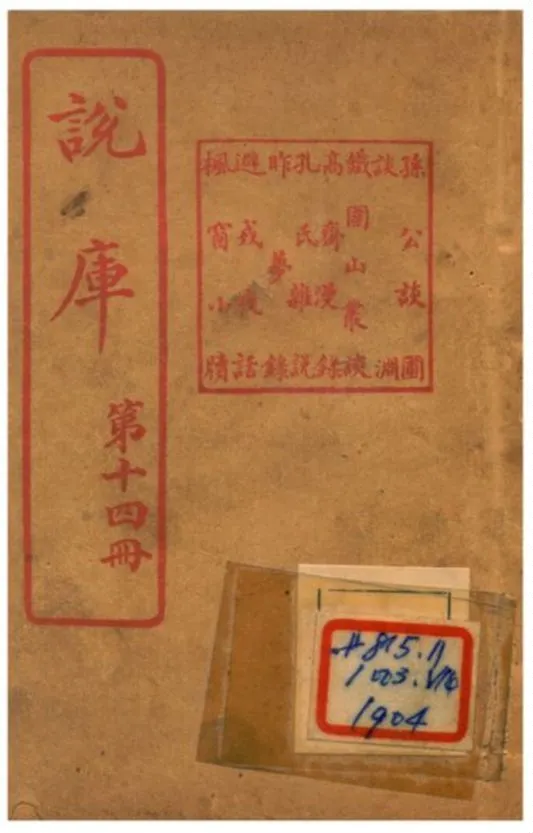 說庫
第十四冊
孫公談圃
談淵
鐵圍山叢談
高齋漫錄
孔氏雜說
昨夢錄
避戎話
楓窗小牘
1904